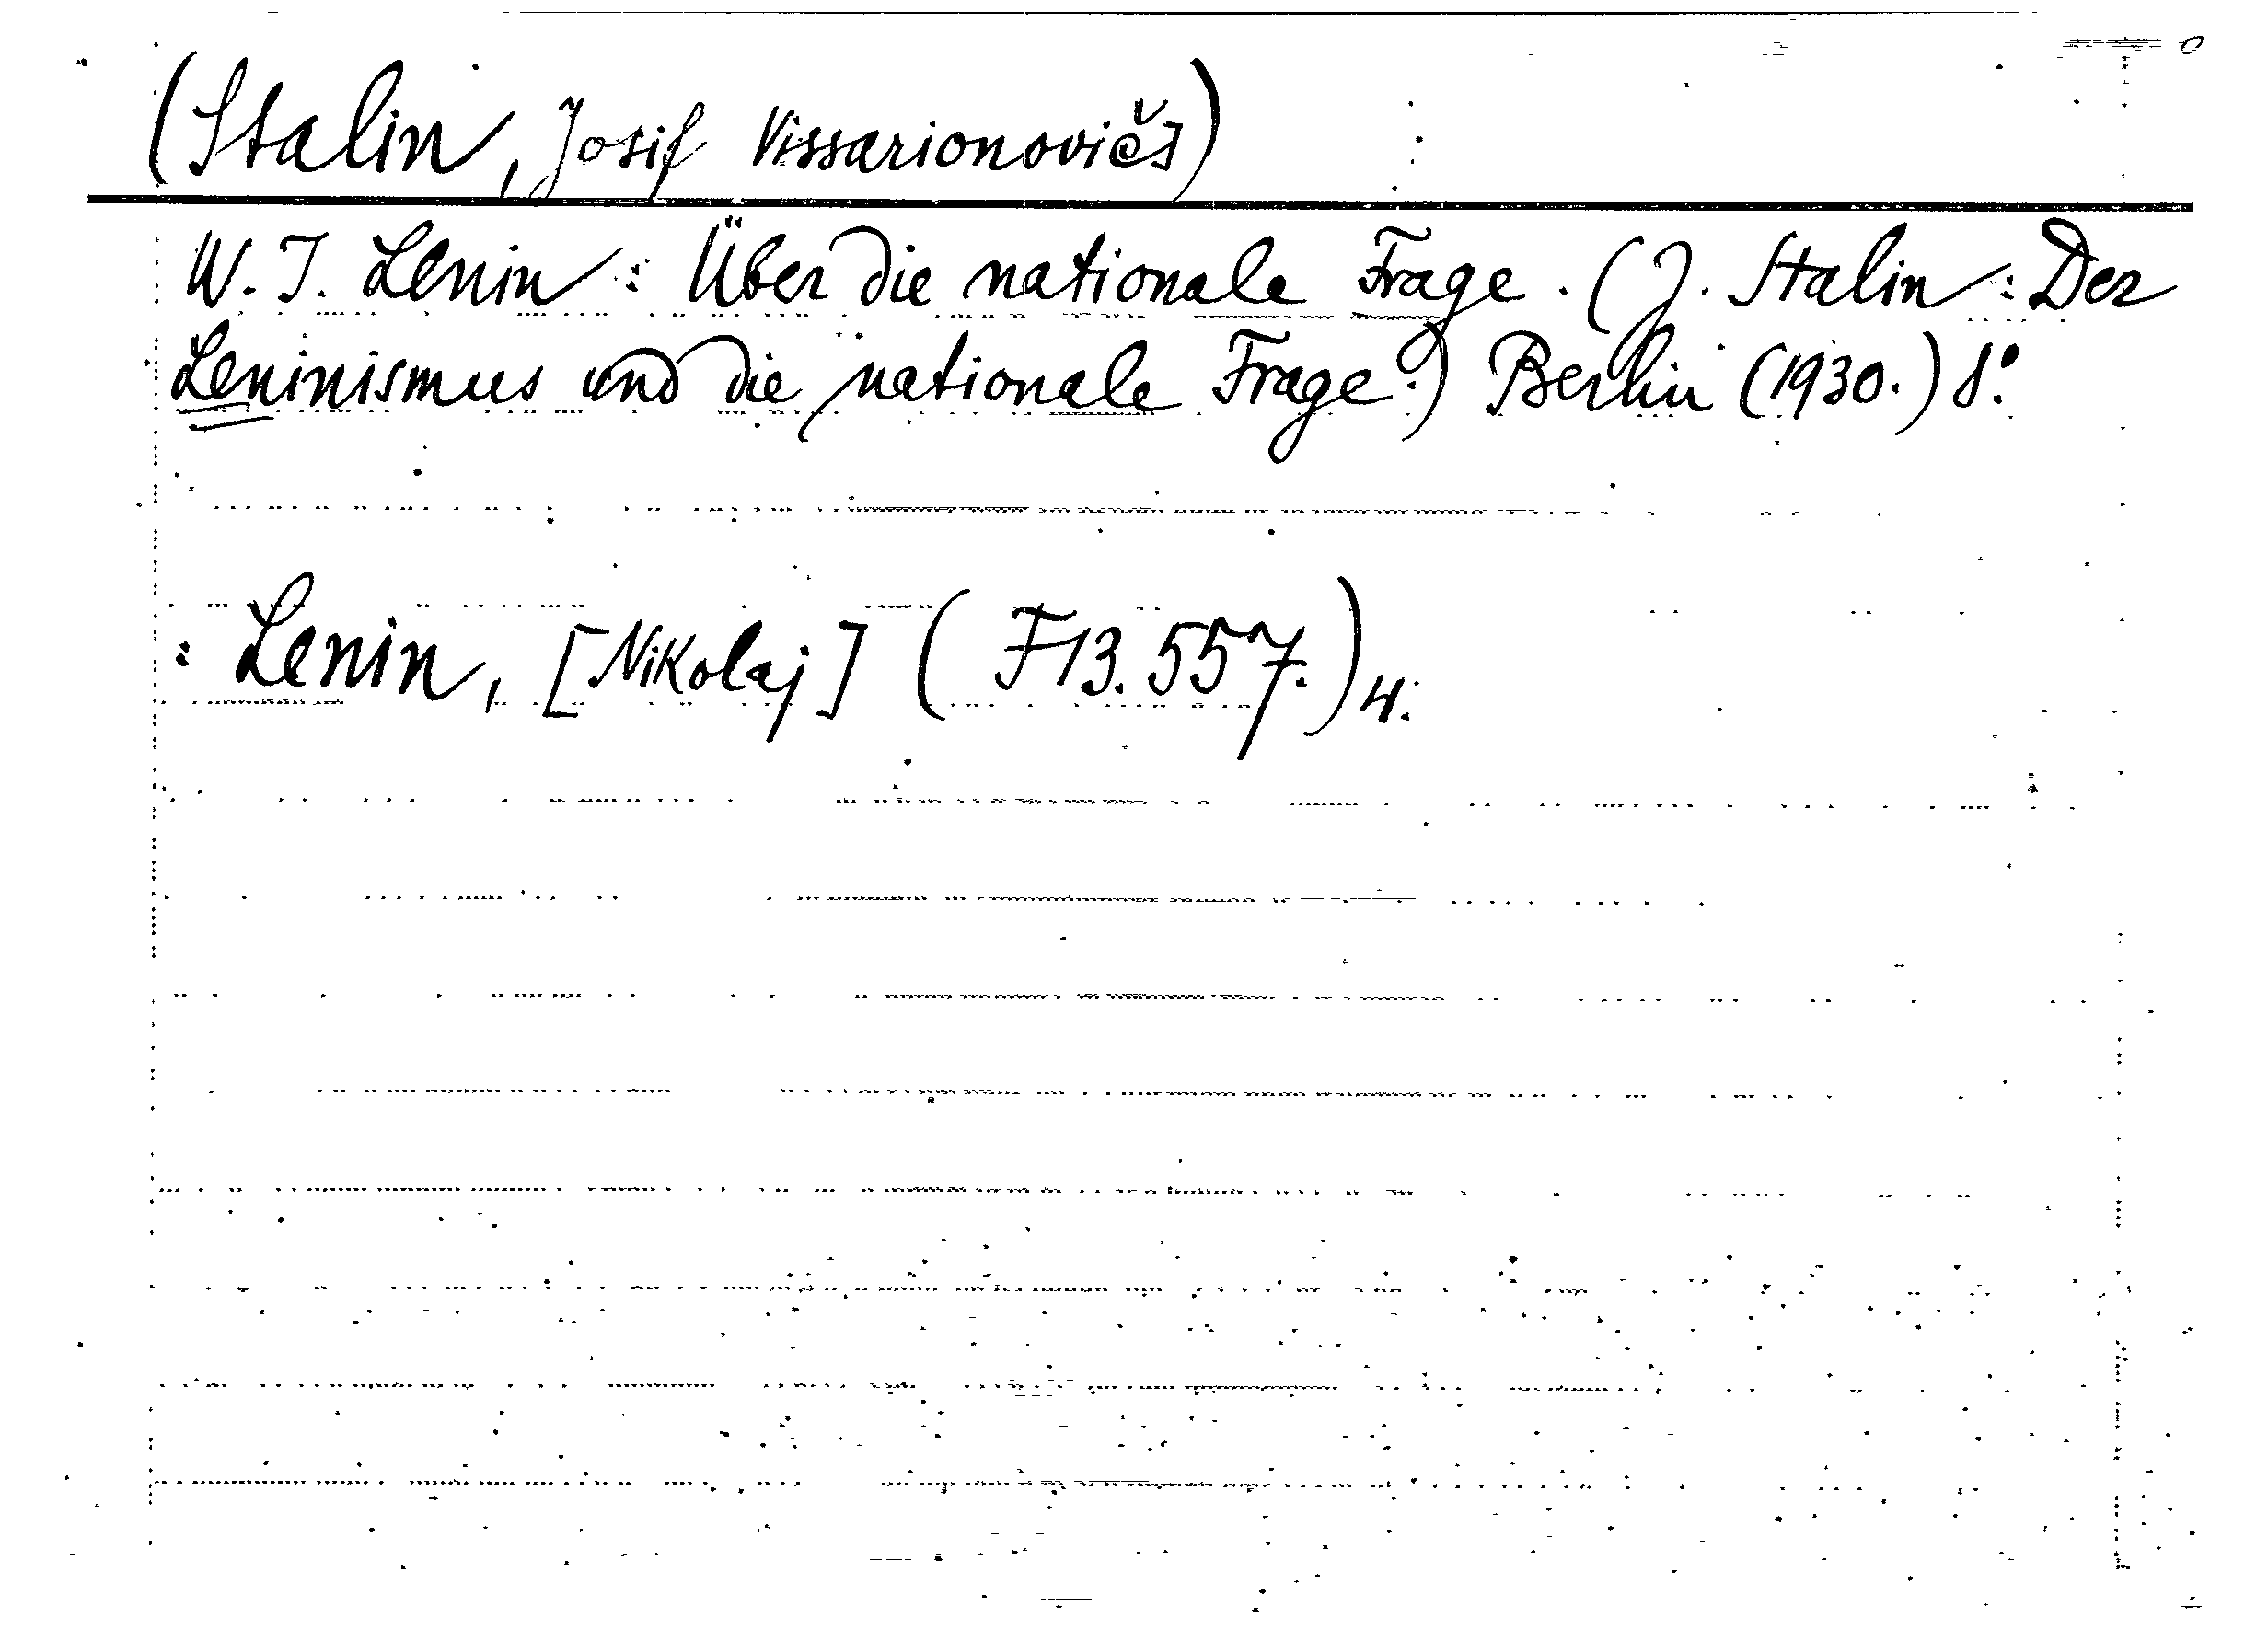 (Stalin, Josif Vissarionovič])
W. I. Lenin: Über die nationale Frage. (J. Stalin: Der
Leninismus und die nationale Frage.) Berlin (1930.) 8°.
: Lenin, [Nikolaj] (F13.557.)4.